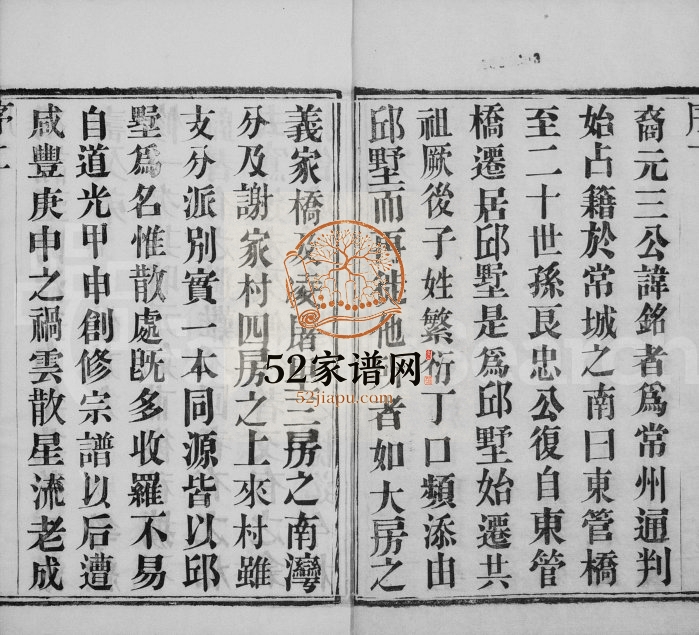 裔元三公諱銘者爲常州通判
始占籍於常城之南曰東管橋
至二十世孫艮忠公復自東管
橋遷居邱墅是爲邱墅始遷共
祖厥後子姓繁衍丁口頻添由
邱墅而再徙他者如大房之
義家橋及三房之南灣
分及謝家村四房之上來村雖
支分派別實一本同源皆以邱
墅爲名惟散處既多收羅不易
自道光甲申創修宗譜以后遭
咸豐庚申之禍雲散星流老成
52家谱网
52jiapu.com